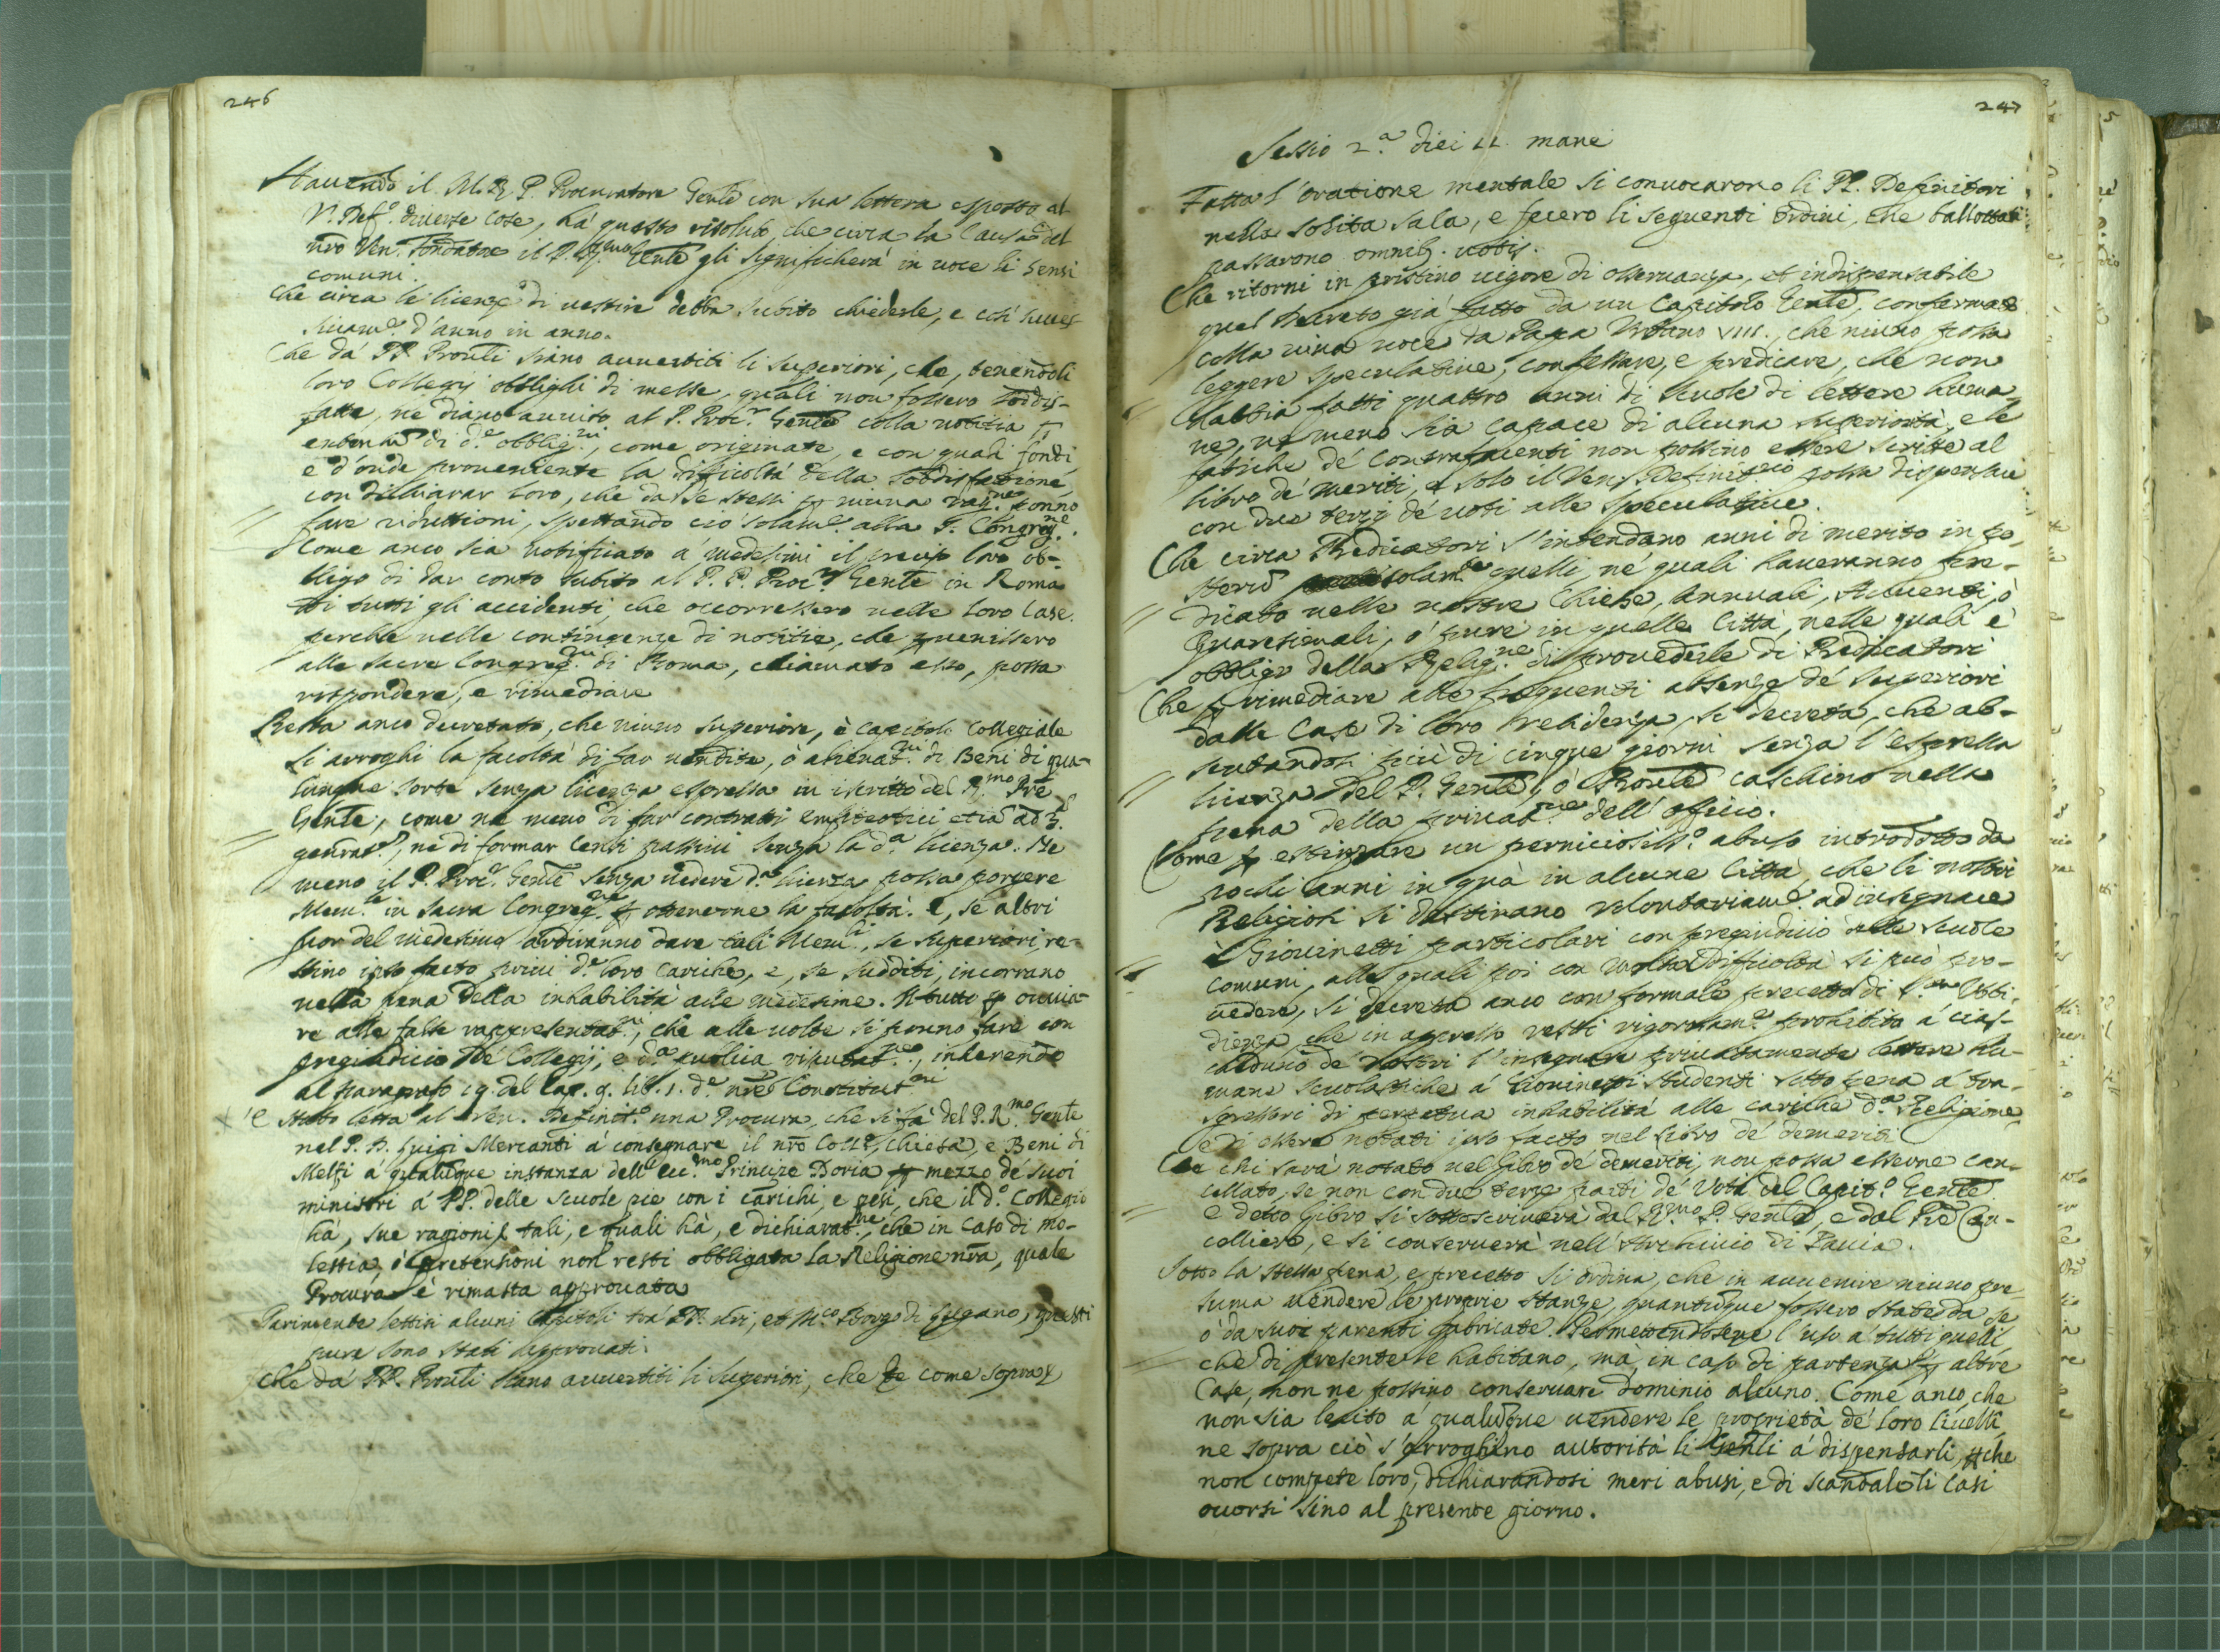 246
Havendo il M. R. P. Procuratore Gen̄le con sua lettera esposto al
V. Def.º diverse cose, hà questo risoluto, che circa la Causa del
nrō Ven. Fondatore il P. Gen̄le gli significherà in voce li sensi
comuni.
Che circa le licenze di vestire debba subito chiederle, e così succes-
sivam.e d'anno in anno.
Che da' PP. Proūli siano avvertiti li Superiori, che, tenendoli
loro Collegij obblighi di messe, quali non fossero soddis-
fatte, ne diano avviso al P. Proc.r Gen̄le colla notitia
di d.e obblig.ni, come originate, e con quali fondi
e d'onde proveniente la difficoltà della soddisfazione
con dichiarar loro, che da se stessi p niuna rag.ne ponno
fare riduttioni, spettando ciò solam.e alla S. Congreg.ne
Come anco sia notificato a' medesimi il loro ob-
bligo di dar conto subito al P. P. Proc.r Gen̄le in Roma
di tutti gli accidenti, che occorressero nelle loro Case,
perche nelle contingenze di notitie, che pvenissero
alle sacre Congreg.ni di Roma, chiamato esso, possa
rispondere, e rimediare
Resta anco decretato, che niuno Superiore, ò Capitolo Collegiale
si arroghi la facoltà di far vendite, ò alienat.ni di Beni di qua-
lunque sorte senza licenza espressa in iscritto del R.mo Prē
Gen̄le, come ne meno di far contratti emfiteotici etiā ad 3.
generat.s, ne di formar Censi passivi senza la d.a licenza. Ne
meno il P. Proc.r Gen̄le senza vedere d.a licenza possa porgere
Mem.le in sacra Congreg.ne p ottenerne la facoltà. E, se altri
fuor del medesimo ardiranno dare tali Mem.li, se Superiori, re-
stino ipso facto privi d.e loro Cariche, e, se sudditi, incorrano
nella pena della inhabilità alle medesime. Il tutto p ovvia-
re alle false rappresentat.ni, che alle volte si ponno fare con
pregiudicio de' Collegij, e d.a publica riputat.ne, inherendo
al paragrafo 19. del Cap. 9. lib. 1. d.e nrē Constitut.ni
X 'E stata letta al Ven. Definit.º una Procura, che si fà del P. R.mo Gen̄le
nel P. D. Luigi Mercanti a consegnare il nrō Coll.º, Chiesa, e Beni di
Melfi a qualūque instanza dell'ecc.mo Principe Doria p mezzo de' suoi
ministri a' PP. delle Scuole pie con i carichi, e pesi, che il d.º Collegio
hà, sue ragioni tali, e quali hà, e dichiarat.ne, che in caso di mo-
lestia, ò pretensioni non resti obbligata la Religione nrā, quale
Procura è rimasta approvata
Parimente lettisi alcuni Capitoli trà PP. nrī, et M.co Borgo di Lugano, questi
pure sono stati approvati.
Che da' PP. Proūli siano avvertiti li Superiori, che te come sopra
247
Sessio 2.a diei 11. mane
Fatta l'oratione mentale si convocarono li PP. Definitori
nella solita sala, e fecero li seguenti ordini, che ballottati
passarono omnib. votis.
Che ritorni in pristino vigore di osservanza, et indispensabile
quel decreto già fatto da un Capitolo Gen̄le, confermato
colla viva voce da Papa Urbano VIII., che niuno possa
leggere speculative, confessare, e predicare, che non
habbia fatti quattro anni di scuole di lettere huma-
ne, ne meno sia capace di alcuna superiorità, e le
fatiche de' contrafacienti non possino essere scritte al
libro de' meriti, e solo il Ven. Definit.rio possa dispensare
con due terzi de' voti alle speculative.
Che circa Predicatori s'intendano anni di merito in po-
sterū solam.te quelli, ne' quali haveranno pre-
dicato nelle nostre Chiese, Annuali, Avventi, ò
Quaresimali, ò pure in quelle Città, nelle quali è
obbligo della Relig.ne di provederle di Predicatori
Che p rimediare alle frequenti assenze de' Superiori
dalle Case di loro residenza, si decreta, che ab-
sentandosi più di cinque giorni senza l'espressa
licenza del P. Gen̄le, ò Proūle caschino nella
pena della privat.ne dell'officio.
Come p estirpare un perniciosiss.º abuso introdotto da
pochi anni in quà in alcune Città, che li nostri
Religiosi si destinano volontariam.e ad insegnare
à Giovinetti particolari con pregiudicio delle scuole
comuni, alle quali poi con molta difficoltà si può pro-
vedere, si decreta anco con formale precetto di S.ta Ubbi-
dienza, che in appresso resti rigorosam.e prohibito a' cias-
cheduno de' nostri l'insegnare privatamente lettere hu-
mane scuolastiche a' Giovinetti studenti sotto pena a' tra-
sgressori di perpetua inhabilità alle cariche d.a Religione
e di essere notati ipso facto nel libro de' demeriti
Che chi sarà notato nel libro de' demeriti, non possa esserne can-
cellato, se non con due terze parti de' Voti del Capit.º Gen̄le
e detto libro si sottoscriverà dal R.mo P. Gen̄le, e dal Prē Can-
celliere, e si conserverà nell'Archivio di Pavia.
Sotto la stessa pena, e precetto si ordina, che in avvenire niuno pre-
suma vendere le proprie stanze, quantūque fossero state da se
ò da suoi parenti fabricate. Permettendosene l'uso a' tutti quelli
che di presente le habitano, mà, in caso di partenza p altre
Case, non ne possino conservare dominio alcuno. Come anco, che
non sia lecito a' qualūque vendere le proprietà de' loro livelli,
ne sopra ciò s'arroghino autorità li Gen̄li a' dispensarli, che
non compete loro, dichiarandosi meri abusi, e di scandalo li casi
occorsi sino al presente giorno.